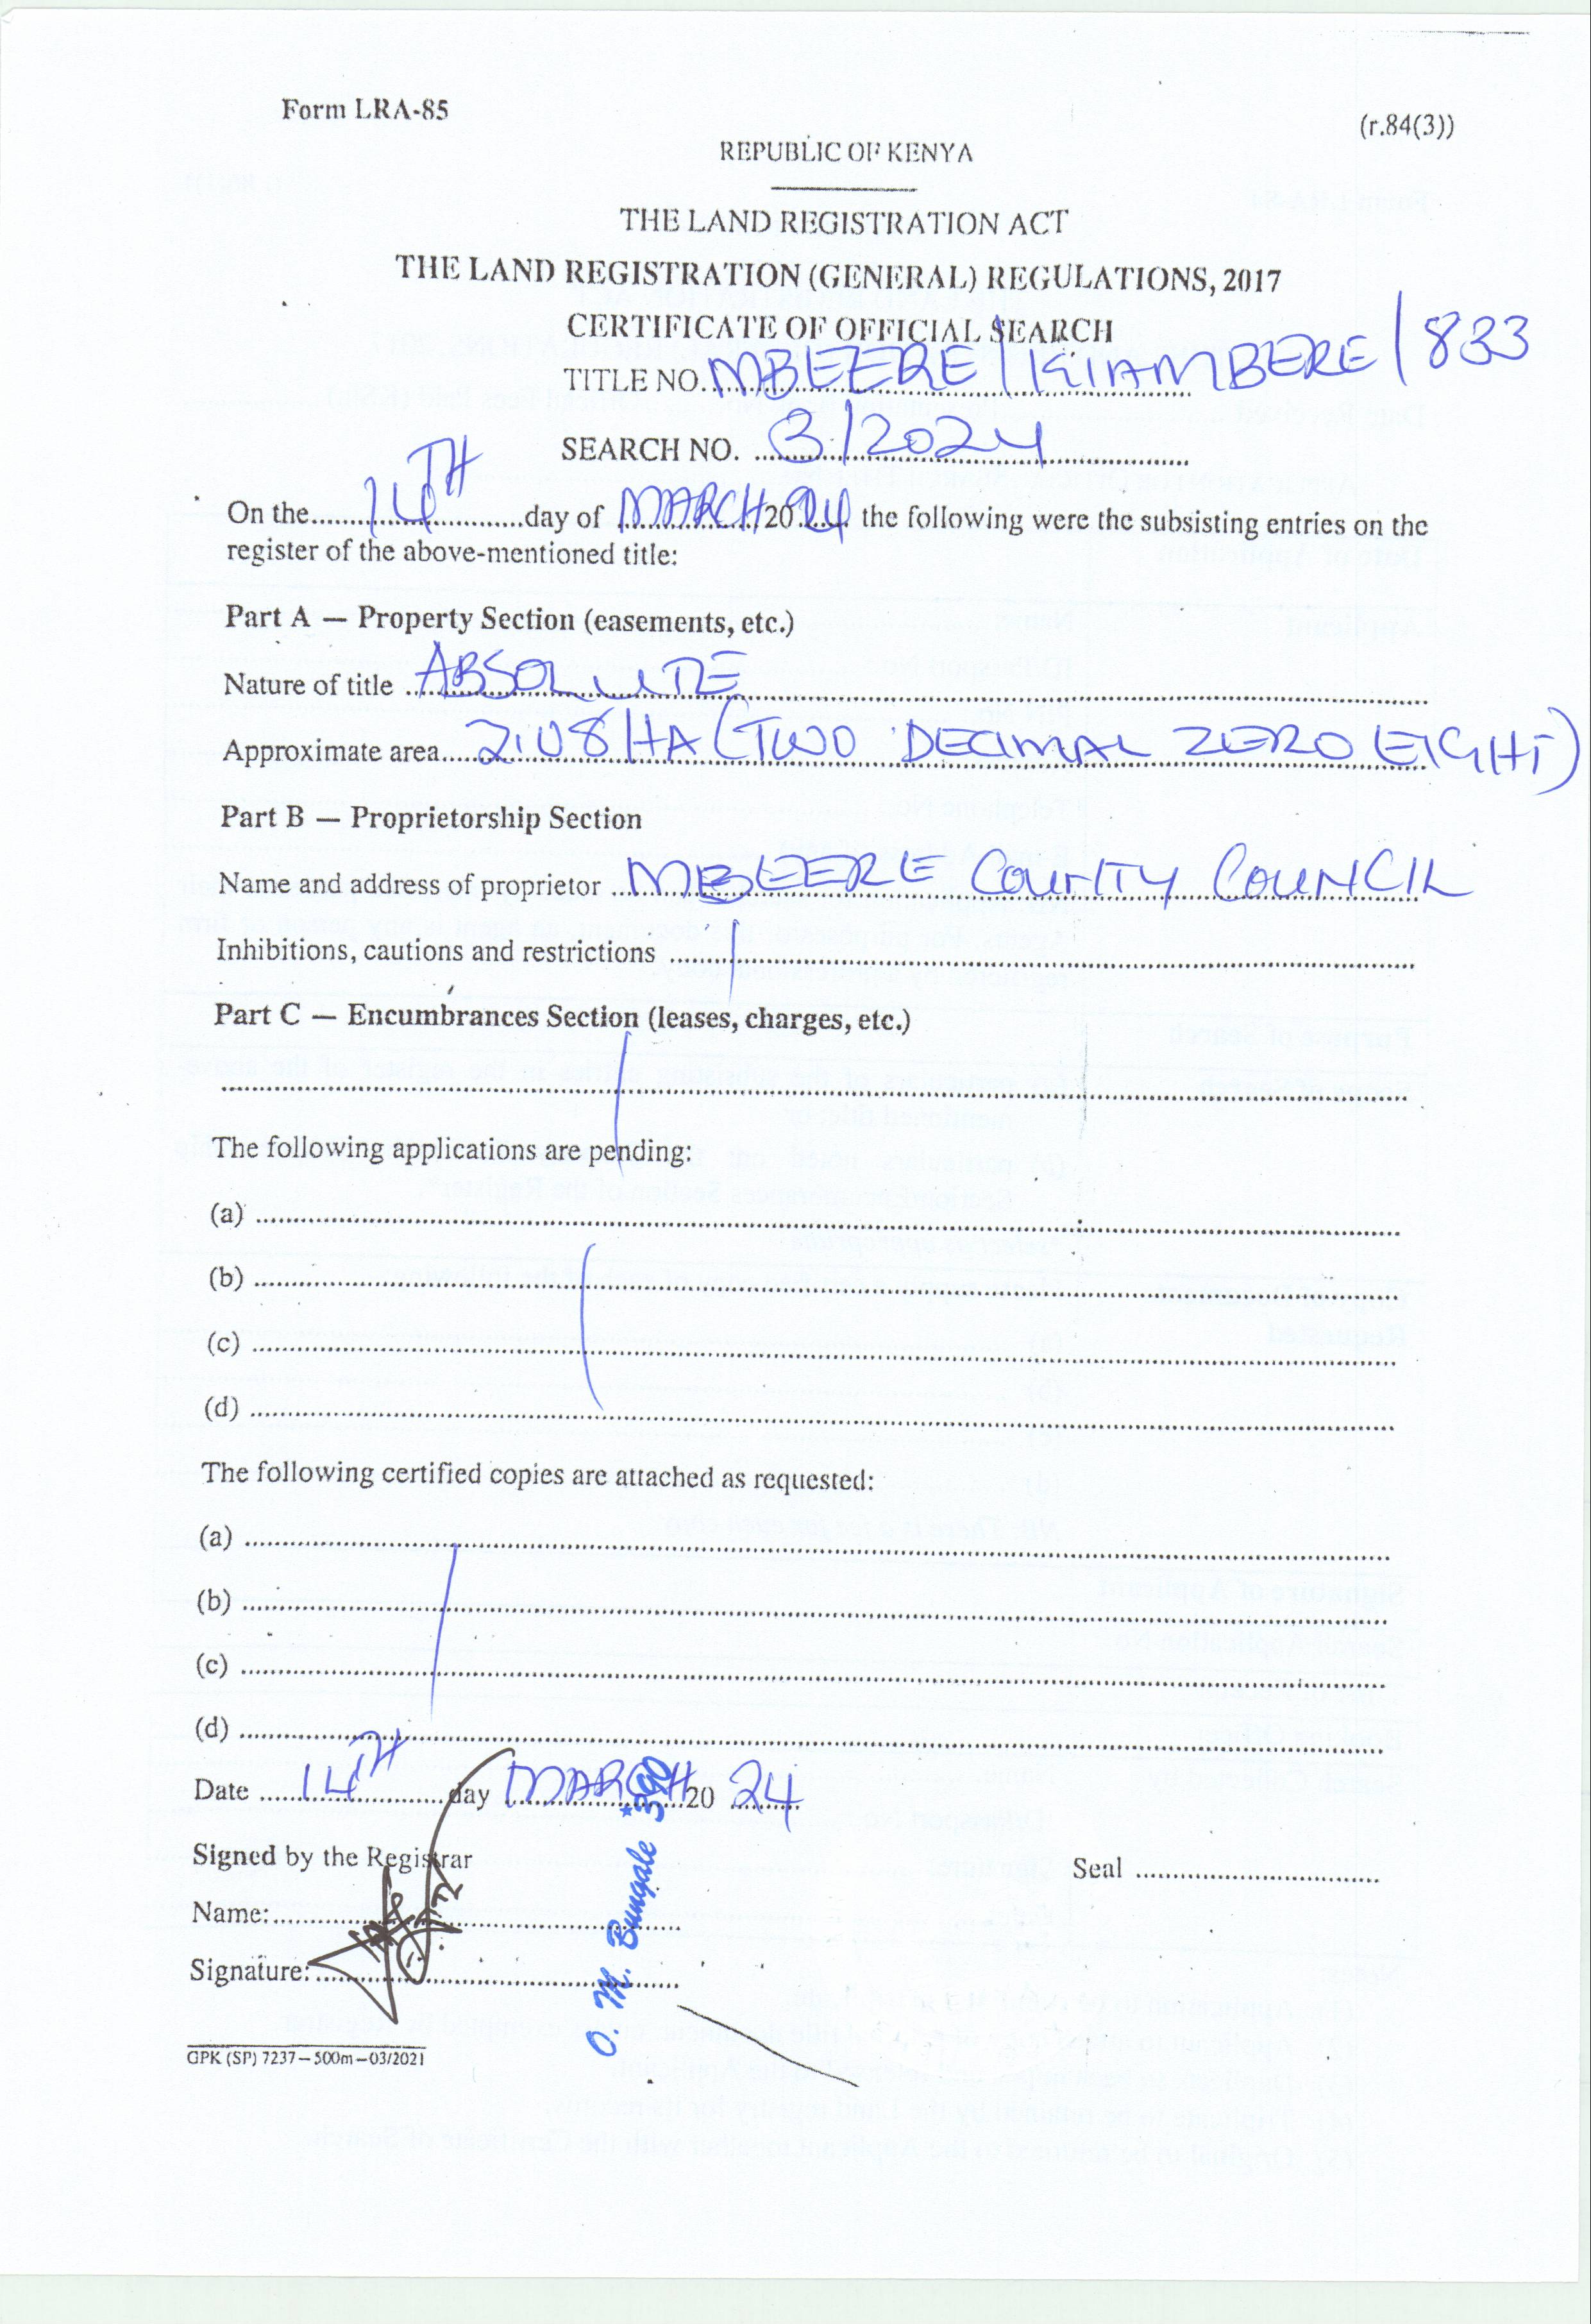 Form LRA-85
(r.84(3))
REPUBLIC OF KENYA
THE LAND REGISTRATION ACT
THE LAND REGISTRATION (GENERAL) REGULATIONS, 2017
CERTIFICATE OF OFFICIAL SEARCH
TITLE NO. MBEERE/KIAMBERE/833
SEARCH NO. 3/2024
On the 14TH day of MARCH 2024 the following were the subsisting entries on the
register of the above-mentioned title:
Part A — Property Section (easements, etc.)
Nature of title ABSOLUTE
Approximate area 2.08HA (TWO DECIMAL ZERO EIGHT)
Part B — Proprietorship Section
Name and address of proprietor MBEERE COUNTY COUNCIL
Inhibitions, cautions and restrictions
Part C — Encumbrances Section (leases, charges, etc.)
The following applications are pending:
(a)
(b)
(c)
(d)
The following certified copies are attached as requested:
(a)
(b)
(c)
(d)
Date 14TH day MARCH 20 24
Signed by the Registrar
Seal
Name:
Signature:
O. M. Bungale *390
GPK (SP) 7237—500m—03/2021